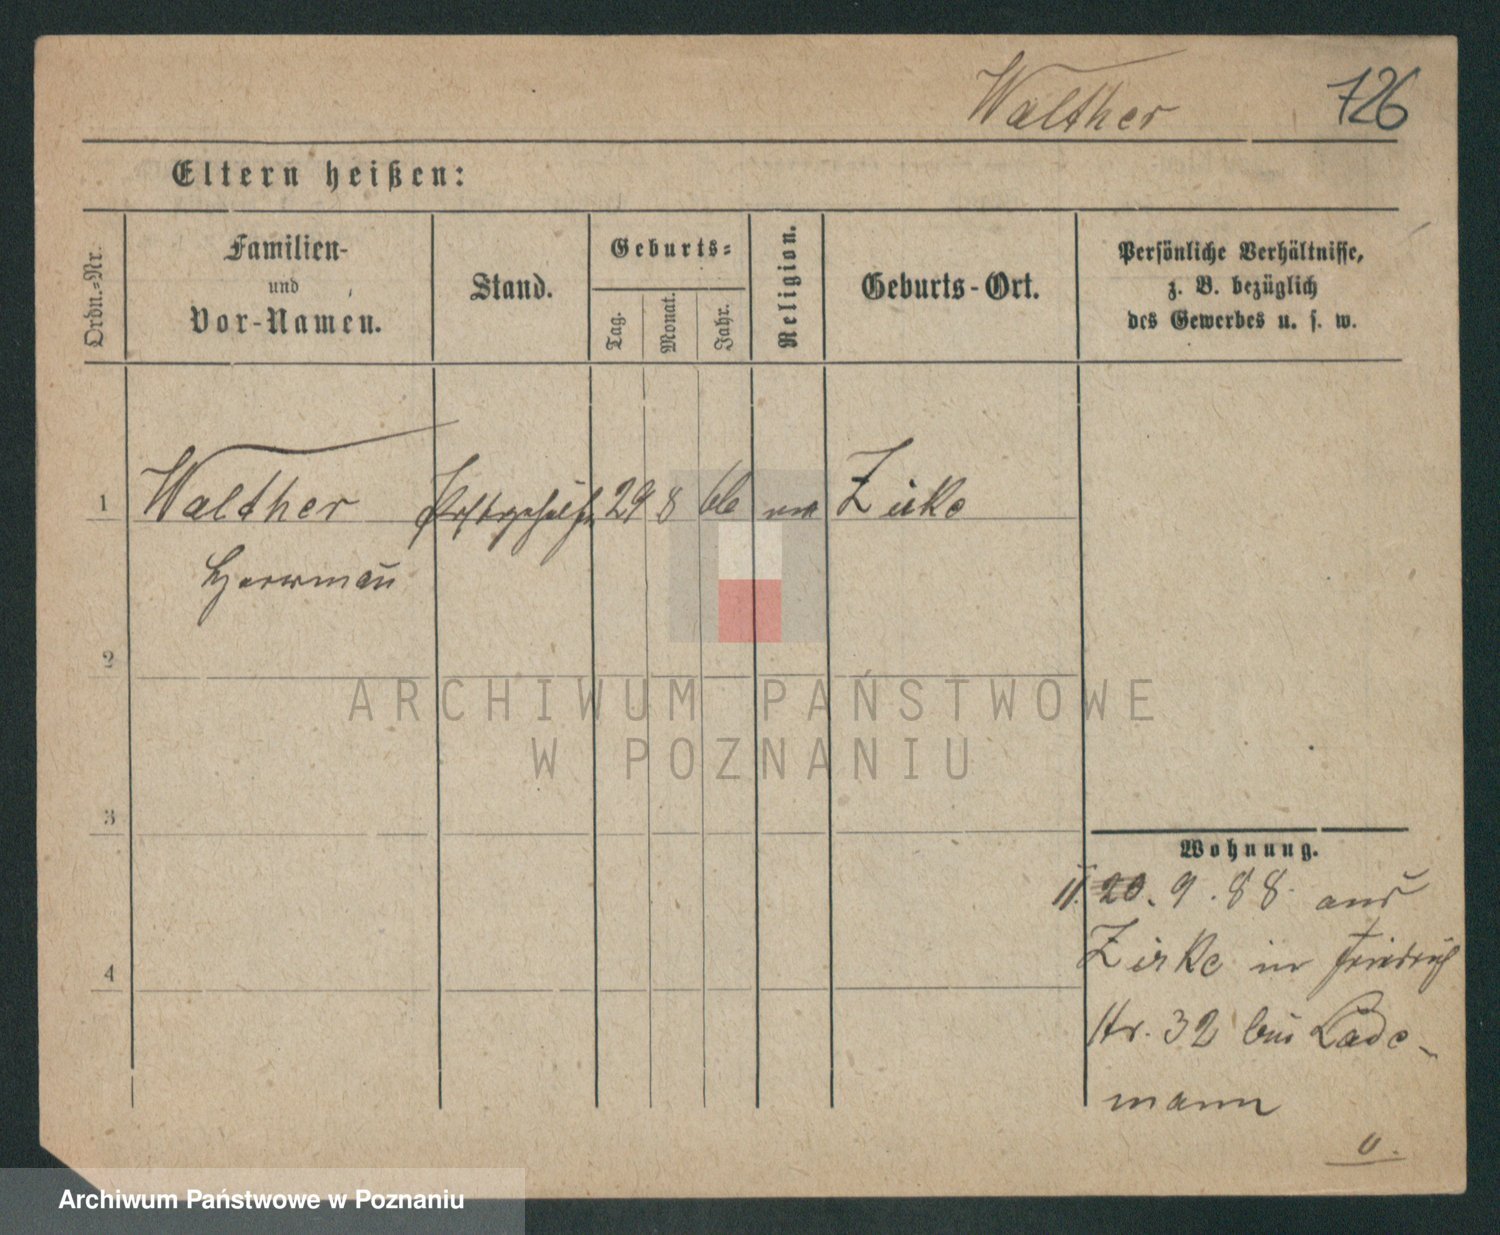 Walther 726
Eltern heißen:
Ordn.-Nr.
Familien-
und
Vor-Namen.
Stand.
Geburts-
Tag.
Monat.
Jahr.
Religion.
Geburts-Ort.
Persönliche Verhältnisse,
z. B. bezüglich
des Gewerbes u. s. w.
1 Walther Postgehilfe 29 8 66 Zirke
Herrmann
2
ARCHIWUM PAŃSTWOWE
W POZNANIU
3
Wohnung.
20. 9. 88 aus
Zirke in Friedrich
4
str. 32 bei Lade-
mann
Archiwum Państwowe w Poznaniu